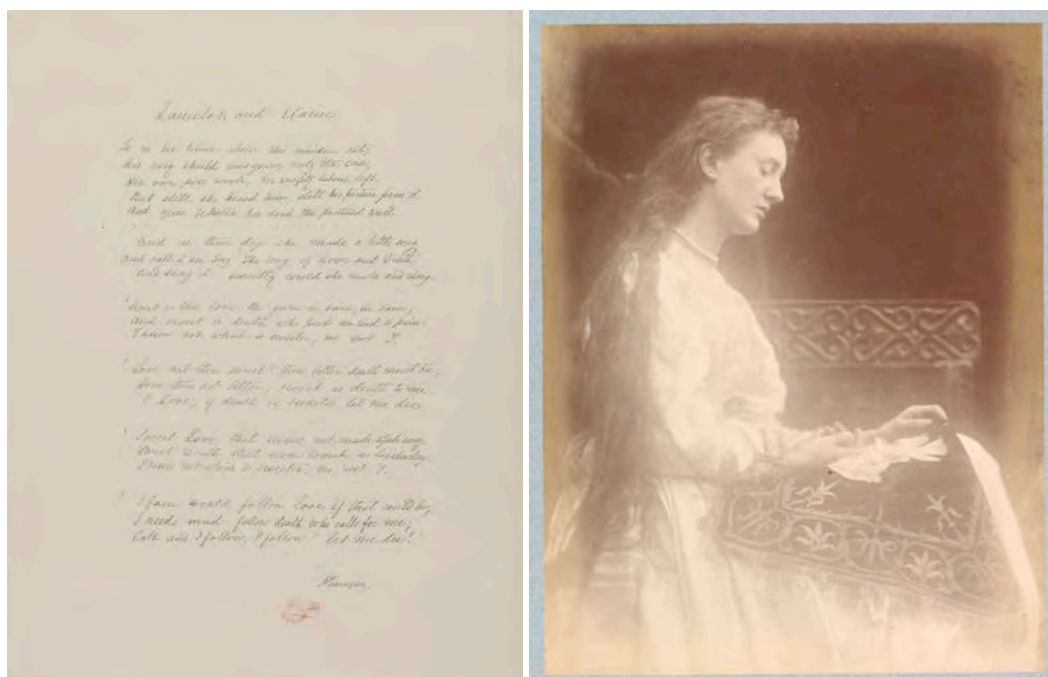 Lancelot and Elaine
So in her tower alone the maiden sat;
His very shield was gone; only the case,
Her own poor work, her empty labour left.
But still she heard him, still his picture form'd
And grew between her and the pictured wall.
And in those days she made a little song
And call'd her song The Song of Love and Death
And sang it: sweetly could she make and sing.
Sweet is true love tho' given in vain, in vain;
And sweet is death who puts an end to pain:
I know not which is sweeter, no, not I.
Love art thou sweet? then bitter death must be,
Love thou art bitter; sweet is death to me
O Love, if death be sweeter let me die
Sweet Love, that seems not made to fade away,
Sweet death that seems to make us loveless clay,
I know not which is sweeter, no, not I.
I fain would follow love, if that could be;
I needs must follow death who calls for me;
Call and I follow, I follow! let me die!